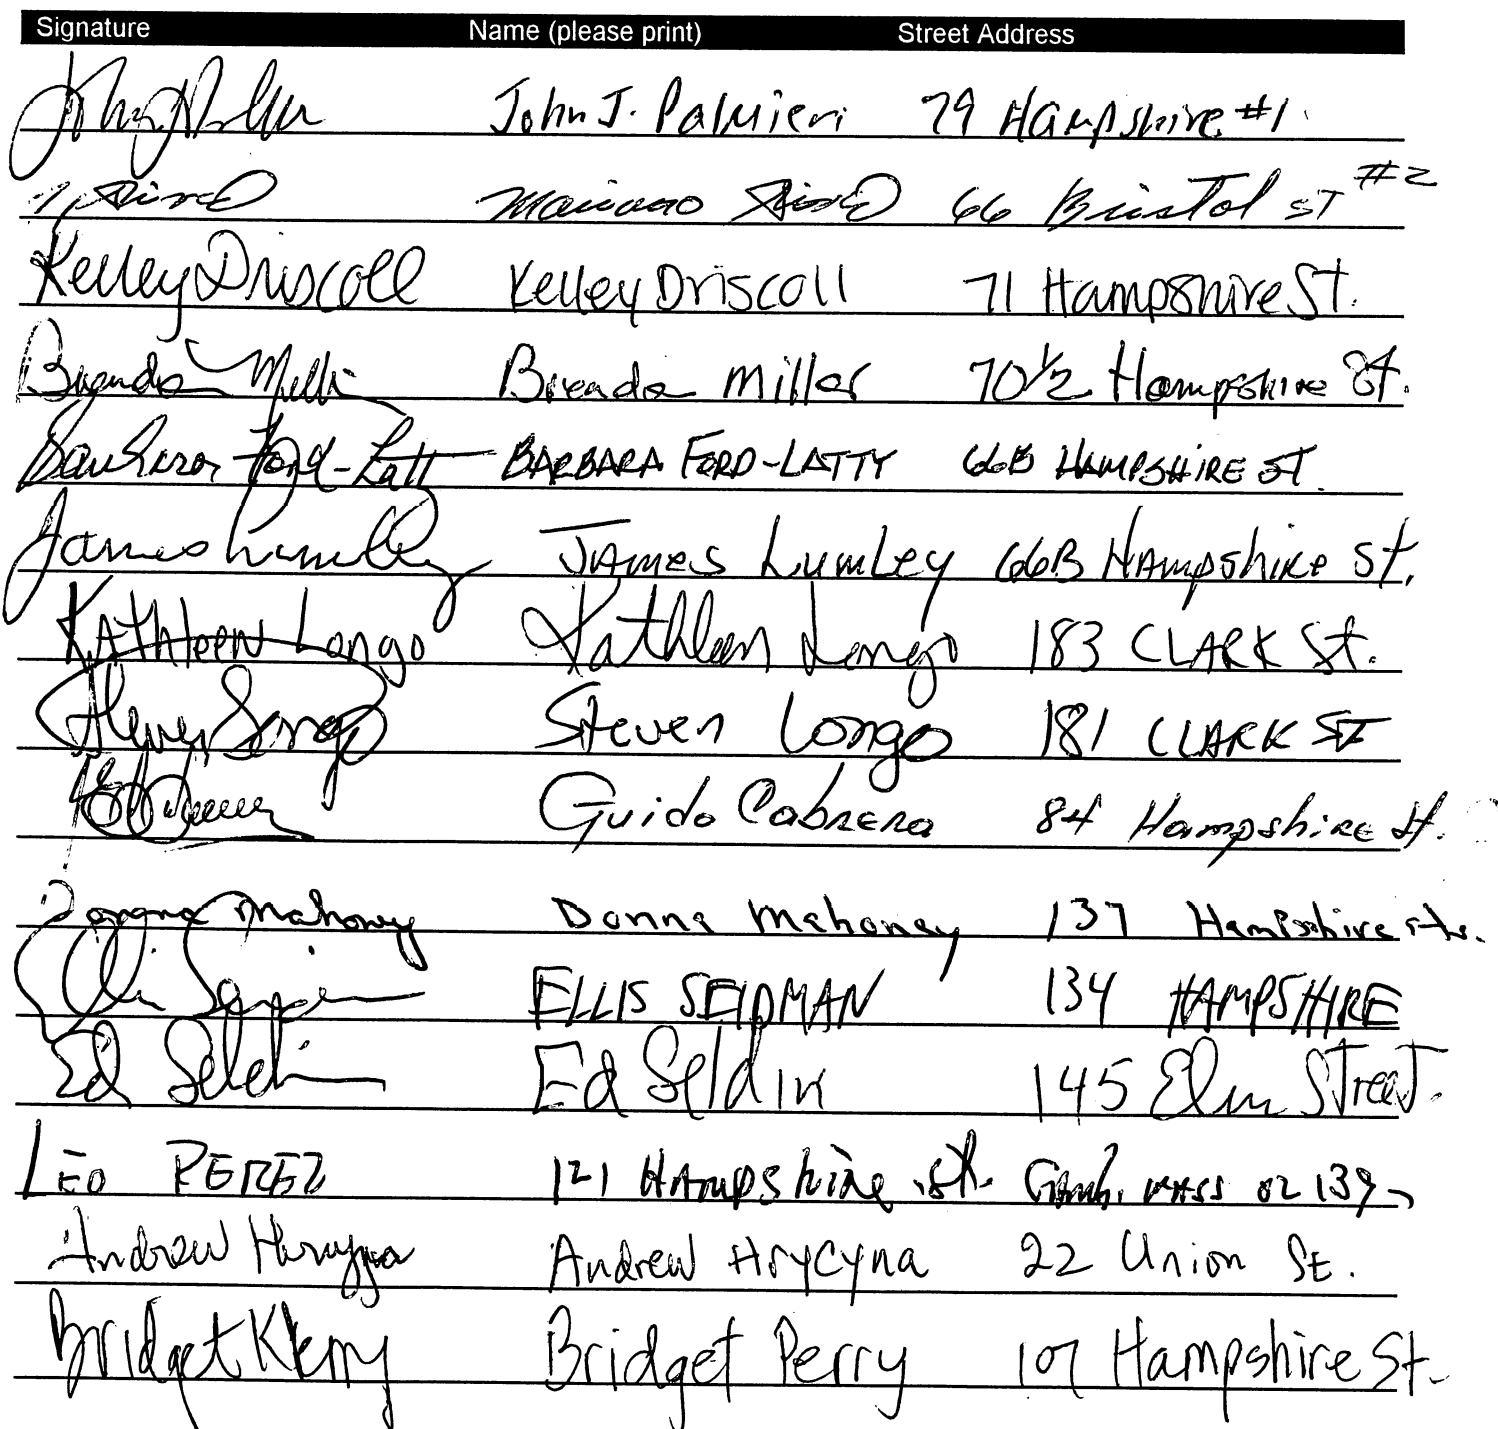 Signature Name (please print) Street Address
John J. Palmieri 79 Hampshire #1
Mariano 66 Bristol ST #2
Kelley Driscoll Kelley Driscoll 71 Hampshire St.
Brenda Miller Brenda Miller 70 1/2 Hampshire St.
Barbara Ford-Latty BARBARA FORD-LATTY 66B HAMPSHIRE ST.
James Lumley JAMES LUMLEY 66B HAMPSHIRE St.
KATHLEEN Longo Kathleen Longo 183 CLARK St.
Steven Longo Steven Longo 181 CLARK ST
Guido Cabrera 84 Hampshire St.
Donna Mahoney Donna Mahoney 137 Hampshire str.
ELLIS SEIDMAN 134 HAMPSHIRE
Ed Seldin Ed Seldin 145 Elm Street.
LEO PEREZ 121 HAMPShire st. Camb. MASS 02139
Andrew Hrycyna Andrew Hrycyna 22 Union St.
Bridget K Perry Bridget Perry 107 Hampshire St.